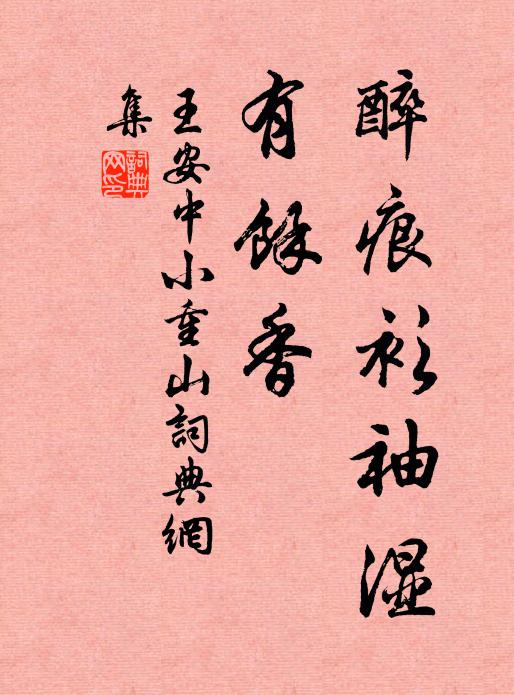 醉痕衫袖湿
有餘香
王安中小重山詞典網
集
詞典網印